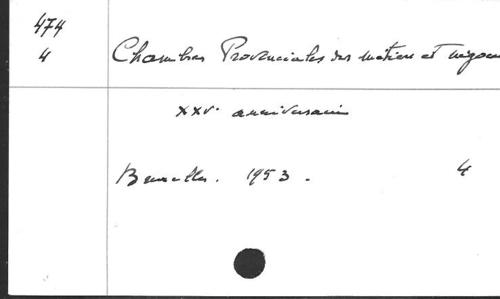 474
4 Chambres Provinciales des métiers et négoces
XXVe anniversaire
Bruxelles. 1953. 4